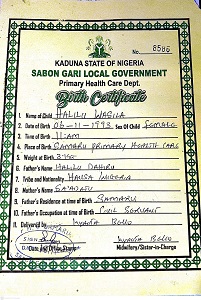 No. 8586
KADUNA STATE OF NIGERIA
SABON GARI LOCAL GOVERNMENT
Primary Health Care Dept.
Birth Certificate
1. Name of Child HALILU WASILA
2. Date of Birth 06-11-1993 Sex Of Child FEMALE
3. Time of Birth 11am
4. Place of Birth SAMARU PRIMARY HEALTH CARE
5. Weight at Birth
6. Father's Name HALILU DAHIRU
7. Tribe and Nationality HAUSA NIGERIA
8. Mother's Name SA'ADATU
9. Father's Residence at time of Birth SAMARU
10. Father's Occupation at time of Birth CIVIL SERVANT
11. Delivered by
Date and Office Stamp
Midwifery/Sister-in-Charge